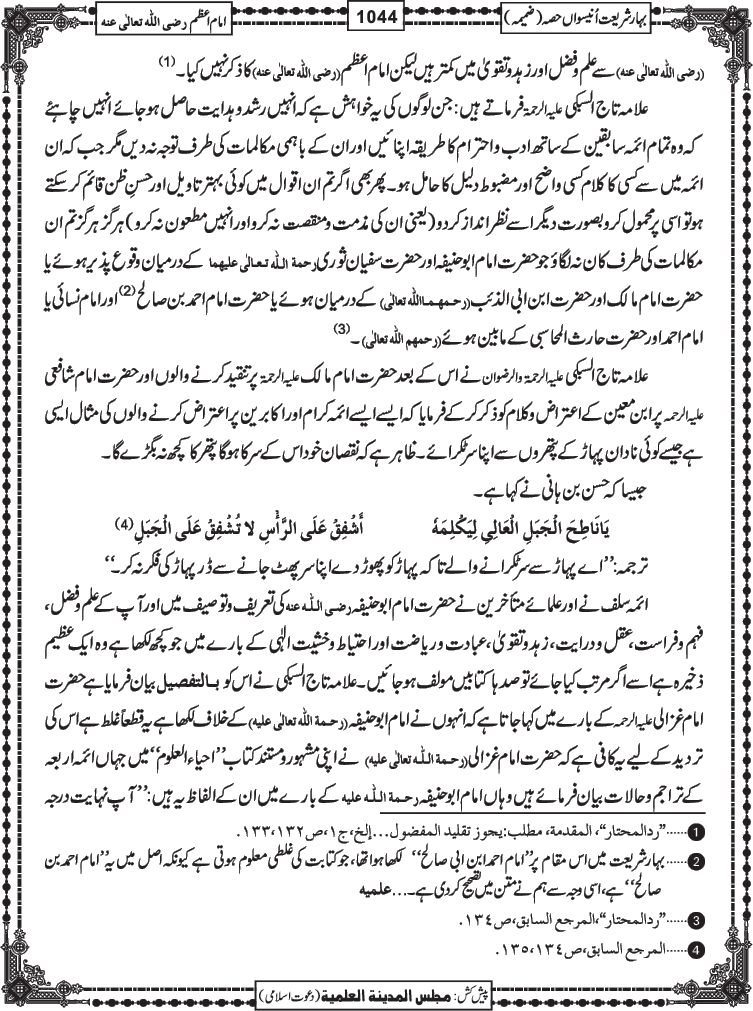 بہارشریعت اُنیسواں حصہ (ضمیمہ)
1044
امام اعظم رضی اللہ تعالیٰ عنہ
(رضی اللہ تعالیٰ عنہ) سے علم و فضل اور زہد و تقویٰ میں کمتر ہیں لیکن امام اعظم (رضی اللہ تعالیٰ عنہ) کا ذکر نہیں کیا۔ (1)
علامہ تاج السبکی علیہ الرحمۃ فرماتے ہیں: جن لوگوں کی یہ خواہش ہے کہ انہیں رشد و ہدایت حاصل ہو جائے انہیں چاہئے
کہ وہ تمام ائمہ سابقین کے ساتھ ادب و احترام کا طریقہ اپنائیں اور ان کے باہمی مکالمات کی طرف توجہ نہ دیں مگر جب کہ ان
ائمہ میں سے کسی کا کلام کسی واضح اور مضبوط دلیل کا حامل ہو۔ پھر بھی اگر تم ان اقوال میں کوئی بہتر تاویل اور حسنِ ظن قائم کر سکتے
ہو تو اسی پر محمول کرو بصورت دیگر اسے نظر انداز کر دو (یعنی ان کی مذمت و منقصت نہ کرو اور انہیں مطعون نہ کرو) ہرگز ہرگز تم ان
مکالمات کی طرف کان نہ لگاؤ جو حضرت امام ابو حنیفہ اور حضرت سفیان ثوری رحمۃ اللہ تعالیٰ علیہما کے درمیان وقوع پذیر ہوئے یا
حضرت امام مالک اور حضرت ابن ابی الذئب (رحمہما اللہ تعالیٰ) کے درمیان ہوئے یا حضرت امام احمد بن صالح (2) اور امام نسائی یا
امام احمد اور حضرت حارث المحاسبی کے مابین ہوئے (رحمہم اللہ تعالیٰ)۔ (3)
علامہ تاج السبکی علیہ الرحمۃ والرضوان نے اس کے بعد حضرت امام مالک علیہ الرحمۃ پر تنقید کرنے والوں اور حضرت امام شافعی
علیہ الرحمہ پر ابن معین کے اعتراض و کلام کو ذکر کر کے فرمایا کہ ایسے ایسے ائمہ کرام اور اکابرین پر اعتراض کرنے والوں کی مثال ایسی
ہے جیسے کوئی نادان پہاڑ کے پتھروں سے اپنا سر ٹکرائے۔ ظاہر ہے کہ نقصان خود اس کے سر کا ہوگا پتھر کا کچھ نہ بگڑے گا۔
جیسا کہ حسن بن ہانی نے کہا ہے۔
یَانَاطِحَ الْجَبَلِ الْعَالِي لِیَکْلِمَهٗ اَشْفِقْ عَلَی الرَّأْسِ لَا تُشْفِقْ عَلَی الْجَبَلِ (4)
ترجمہ: ”اے پہاڑ سے سر ٹکرانے والے تاکہ پہاڑ کو پھوڑ دے اپنا سر پھٹ جانے سے ڈر پہاڑ کی فکر نہ کر۔“
ائمہ سلف نے اور علمائے متأخرین نے حضرت امام ابو حنیفہ رضی اللہ عنہ کی تعریف و توصیف میں اور آپ کے علم و فضل،
فہم و فراست، عقل و درایت، زہد و تقویٰ، عبادت و ریاضت اور احتیاط و خشیت الٰہی کے بارے میں جو کچھ لکھا ہے وہ ایک عظیم
ذخیرہ ہے اسے اگر مرتب کیا جائے تو صدہا کتابیں مولف ہو جائیں۔ علامہ تاج السبکی نے اس کو بالتفصیل بیان فرمایا ہے حضرت
امام غزالی علیہ الرحمہ کے بارے میں کہا جاتا ہے کہ انہوں نے امام ابو حنیفہ (رحمۃ اللہ تعالیٰ علیہ) کے خلاف لکھا ہے یہ قطعاً غلط ہے اس کی
تردید کے لیے یہ کافی ہے کہ حضرت امام غزالی (رحمۃ اللہ تعالیٰ علیہ) نے اپنی مشہور و مستند کتاب ”احیاء العلوم“ میں جہاں ائمہ اربعہ
کے تراجم و حالات بیان فرمائے ہیں وہاں امام ابو حنیفہ رحمۃ اللہ علیہ کے بارے میں ان کے الفاظ یہ ہیں: ”آپ نہایت درجہ
1 ......”ردالمحتار“، المقدمة، مطلب: یجوز تقلید المفضول...إلخ، ج۱، ص۱۳۲،۱۳۳.
2 ......بہار شریعت میں اس مقام پر ”امام احمد ابن ابی صالح“ لکھا ہوا تھا، جو کتابت کی غلطی معلوم ہوتی ہے کیونکہ اصل میں یہ ”امام احمد بن
صالح“ ہے، اسی وجہ سے ہم نے متن میں تصحیح کر دی ہے۔... علمیه
3 ......”ردالمحتار“، المرجع السابق، ص۱۳٤.
4 ......المرجع السابق، ص۱۳٤،۱۳۵.
پیش کش: مجلس المدینة العلمیة (دعوت اسلامی)